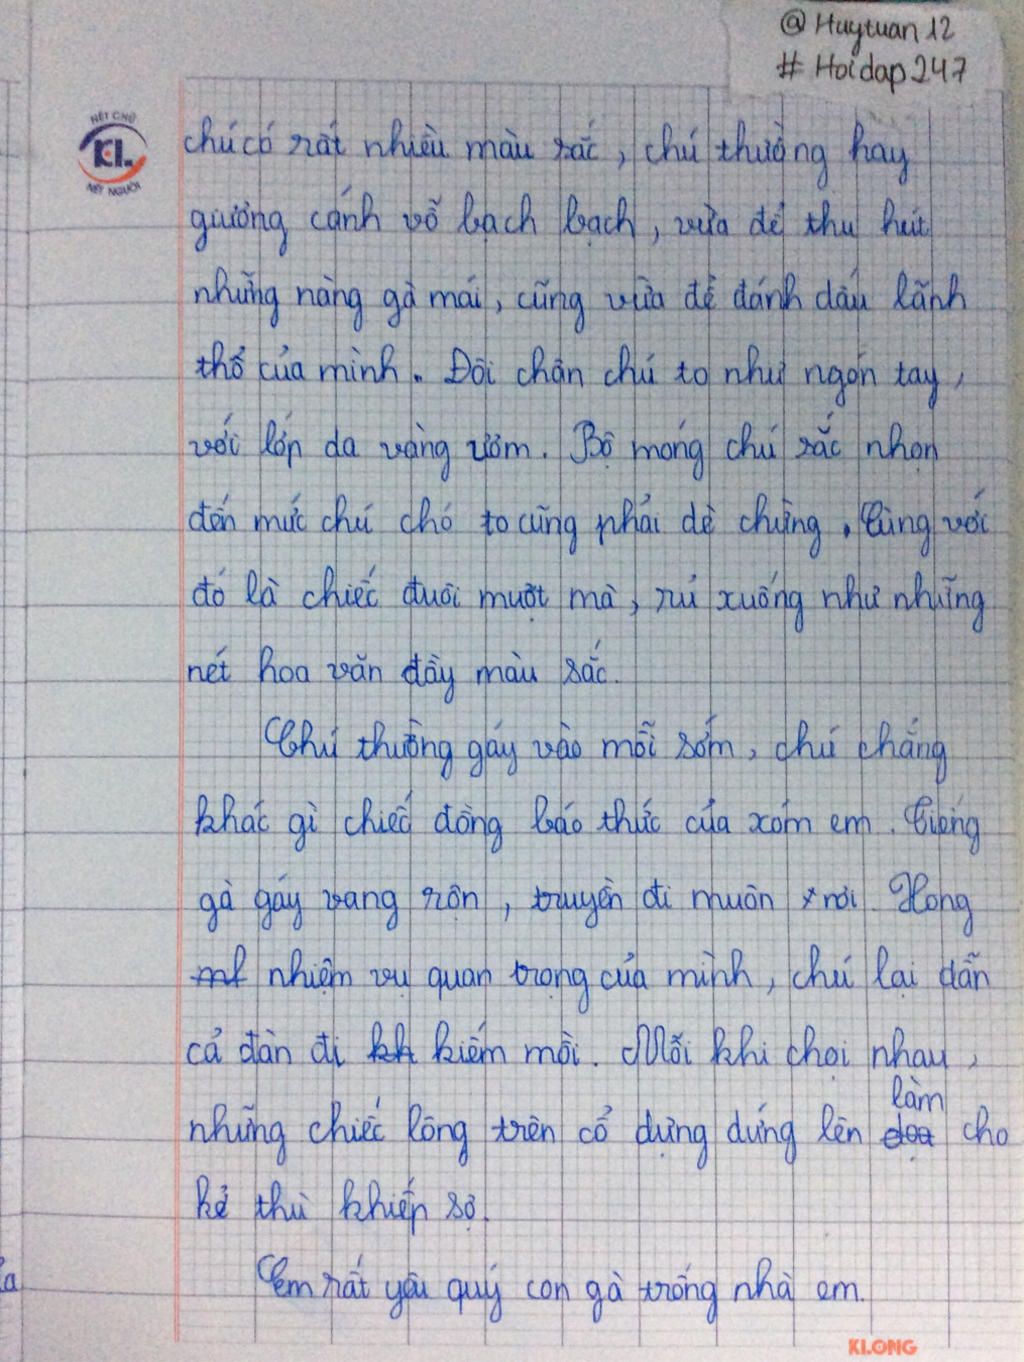 @ Huytuan12
# Hoidap247
NÉT CHỮ
KL
NẾT NGƯỜI
chú có rất nhiều màu sắc, chú thường hay
giương cánh vỗ bạch bạch, vừa để thu hút
những nàng gà mái, cũng vừa để đánh dấu lãnh
thổ của mình. Đôi chân chú to như ngón tay,
với lớp da vàng ươm. Bộ móng chú sắc nhọn
đến mức chú chó to cũng phải dè chừng. Cùng với
đó là chiếc đuôi mượt mà, rủ xuống như những
nét hoa văn đầy màu sắc.
Chú thường gáy vào mỗi sớm, chú chẳng
khác gì chiếc đồng báo thức của xóm em. Tiếng
gà gáy vang rộn, truyền đi muôn nơi. Xong
nhiệm vụ quan trọng của mình, chú lại dẫn
cả đàn đi kiếm mồi. Mỗi khi chọi nhau,
làm
những chiếc lông trên cổ dựng đứng lên cho
kẻ thù khiếp sợ.
Em rất yêu quý con gà trống nhà em.
KLONG